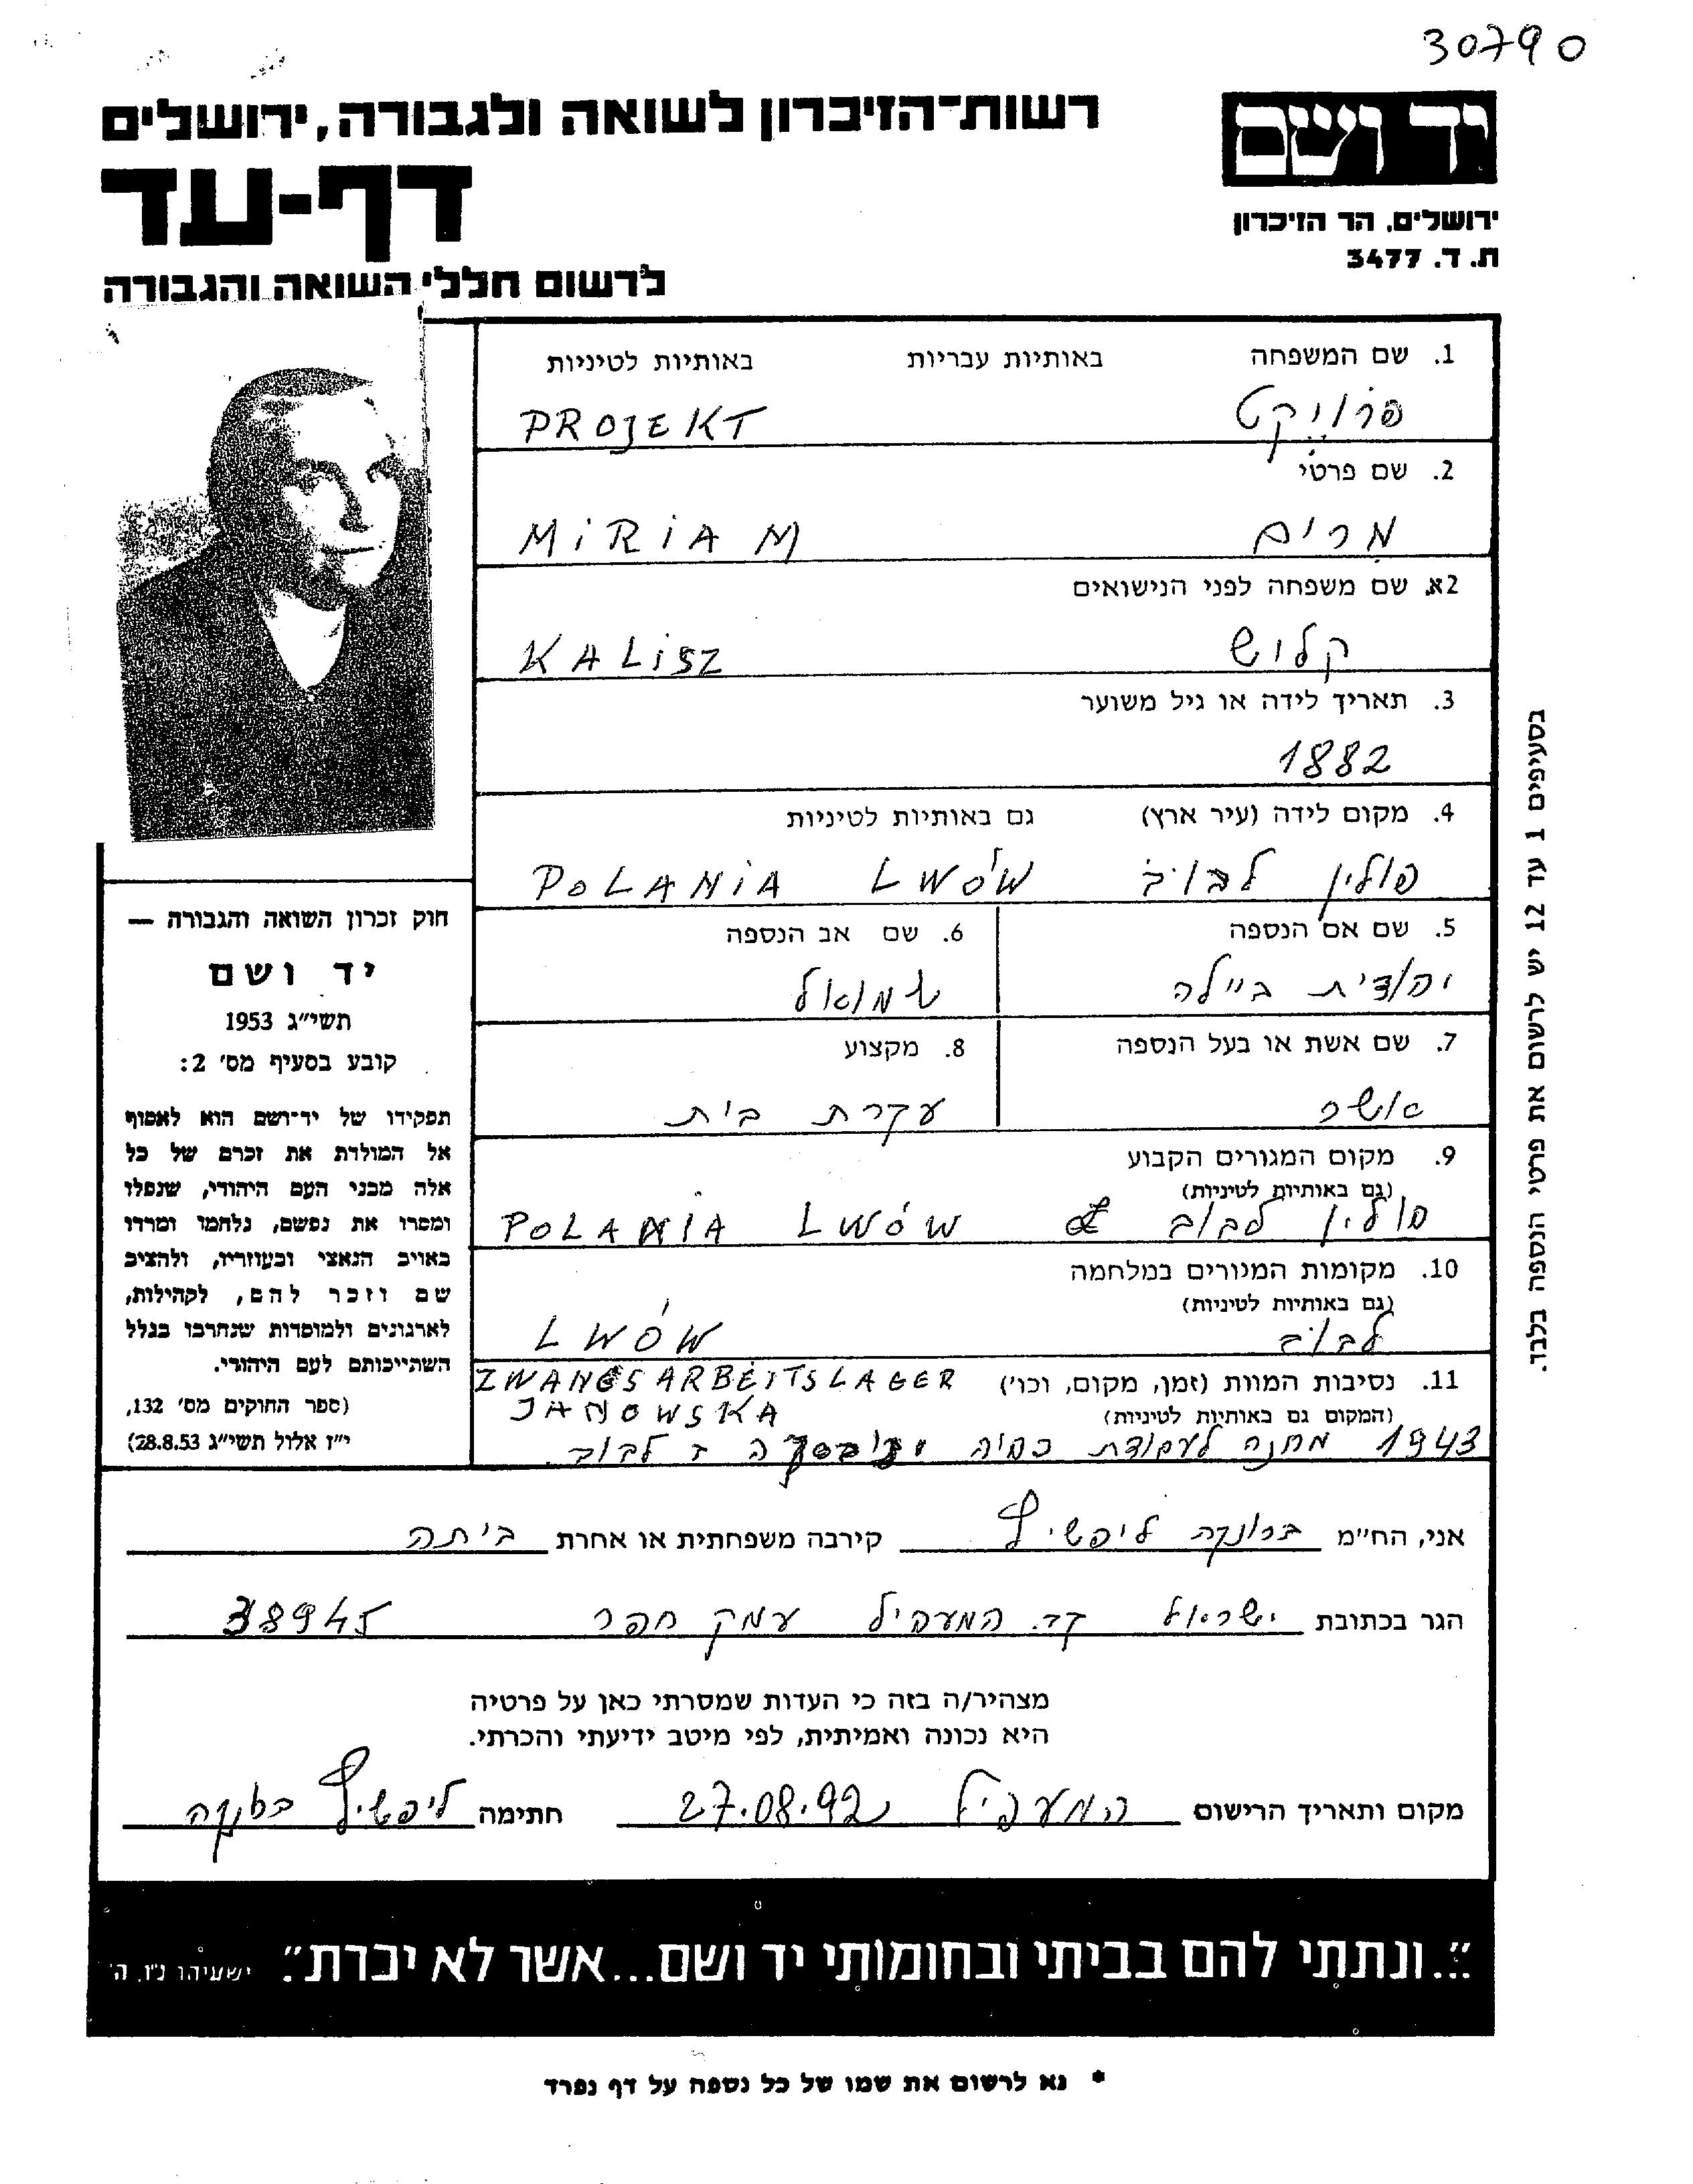 30790
יד ושם
ירושלים. הר הזיכרון
ת. ד. 3477
רשות־הזיכרון לשואה ולגבורה, ירושלים
דף-עד
לרשום חללי השואה והגבורה
1. שם המשפחה באותיות עבריות באותיות לטיניות
פרוייקט PROJEKT
2. שם פרטי
מרים MiRiAM
2א. שם משפחה לפני הנישואים
קלוש KALiSZ
3. תאריך לידה או גיל משוער
1882
4. מקום לידה (עיר ארץ) גם באותיות לטיניות
פולין לבוב LWÓW POLANiA
5. שם אם הנספה 6. שם אב הנספה
יהודית ביילה שמואל
7. שם אשת או בעל הנספה 8. מקצוע
אשר עקרת בית
9. מקום המגורים הקבוע
(גם באותיות לטיניות)
פולין לבוב LWÓW POLANIA
10. מקומות המגורים במלחמה
(גם באותיות לטיניות)
לבוב LWÓW
11. נסיבות המוות (זמן, מקום, וכו') ZWANGSARBEITSLAGER
(המקום גם באותיות לטיניות) JANOWSKA
1943 מחנה לעבודת כפיה לבוב.
חוק זכרון השואה והגבורה —
יד ושם
תשי״ג 1953
קובע בסעיף מס׳ 2:
תפקידו של יד־ושם הוא לאסוף
אל המולדת את זכרם של כל
אלה מבני העם היהודי, שנפלו
ומסרו את נפשם, נלחמו ומרדו
באויב הנאצי ובעוזריו, ולהציב
שם וזכר להם, לקהילות,
לארגונים ולמוסדות שנחרבו בגלל
השתייכותם לעם היהודי.
(ספר החוקים מס׳ 132,
י״ז אלול תשי״ג 28.8.53)
בסעיפים 1 עד 12 יש לרשום את פרטי הנספה בלבד.
אני, הח״מ ברונקה ליפשיץ קירבה משפחתית או אחרת ביתה
הגר בכתובת ישראל קב. המעפיל עמק חפר 38945
מצהיר/ה בזה כי העדות שמסרתי כאן על פרטיה
היא נכונה ואמיתית, לפי מיטב ידיעתי והכרתי.
מקום ותאריך הרישום המעפיל 27.08.92 חתימה ליפשיץ ברונקה
״...ונתתי להם בביתי ובחומותי יד ושם...אשר לא יכרת״. ישעיהו נ״ו, ה׳
* נא לרשום את שמו של כל נספה על דף נפרד